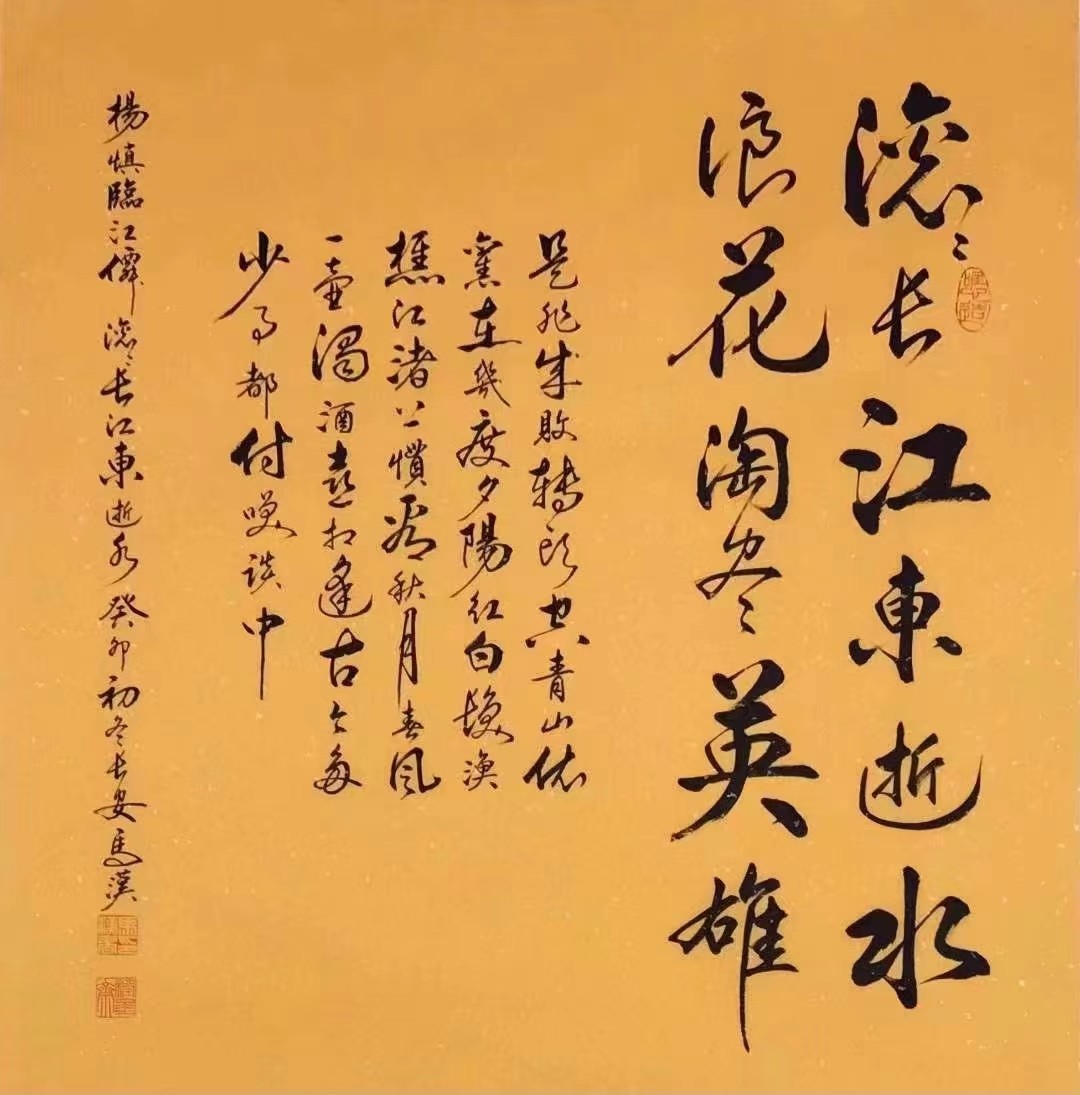 滚〻长江東逝水
浪花淘尽英雄
是非成敗转头空青山依
舊在幾度夕陽红白髮渔
樵江渚上慣看秋月春风
一壶濁酒喜相逢古今多
少事都付笑談中
楊慎臨江僊 滚〻长江東逝水 癸卯初冬长安馬漢